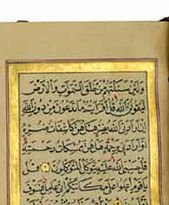 ولئن سألتهم من خلق السموات والأرض
ليقولن الله قل أفرأيتم ما تدعون من دون الله
إن أرادني الله بضر هل هن كاشفات ضره
أو أرادني برحمة هل هن ممسكات رحمته
قل حسبي الله عليه يتوكل المتوكلون قل
يا قوم اعملوا على مكانتكم إني عامل فسوف